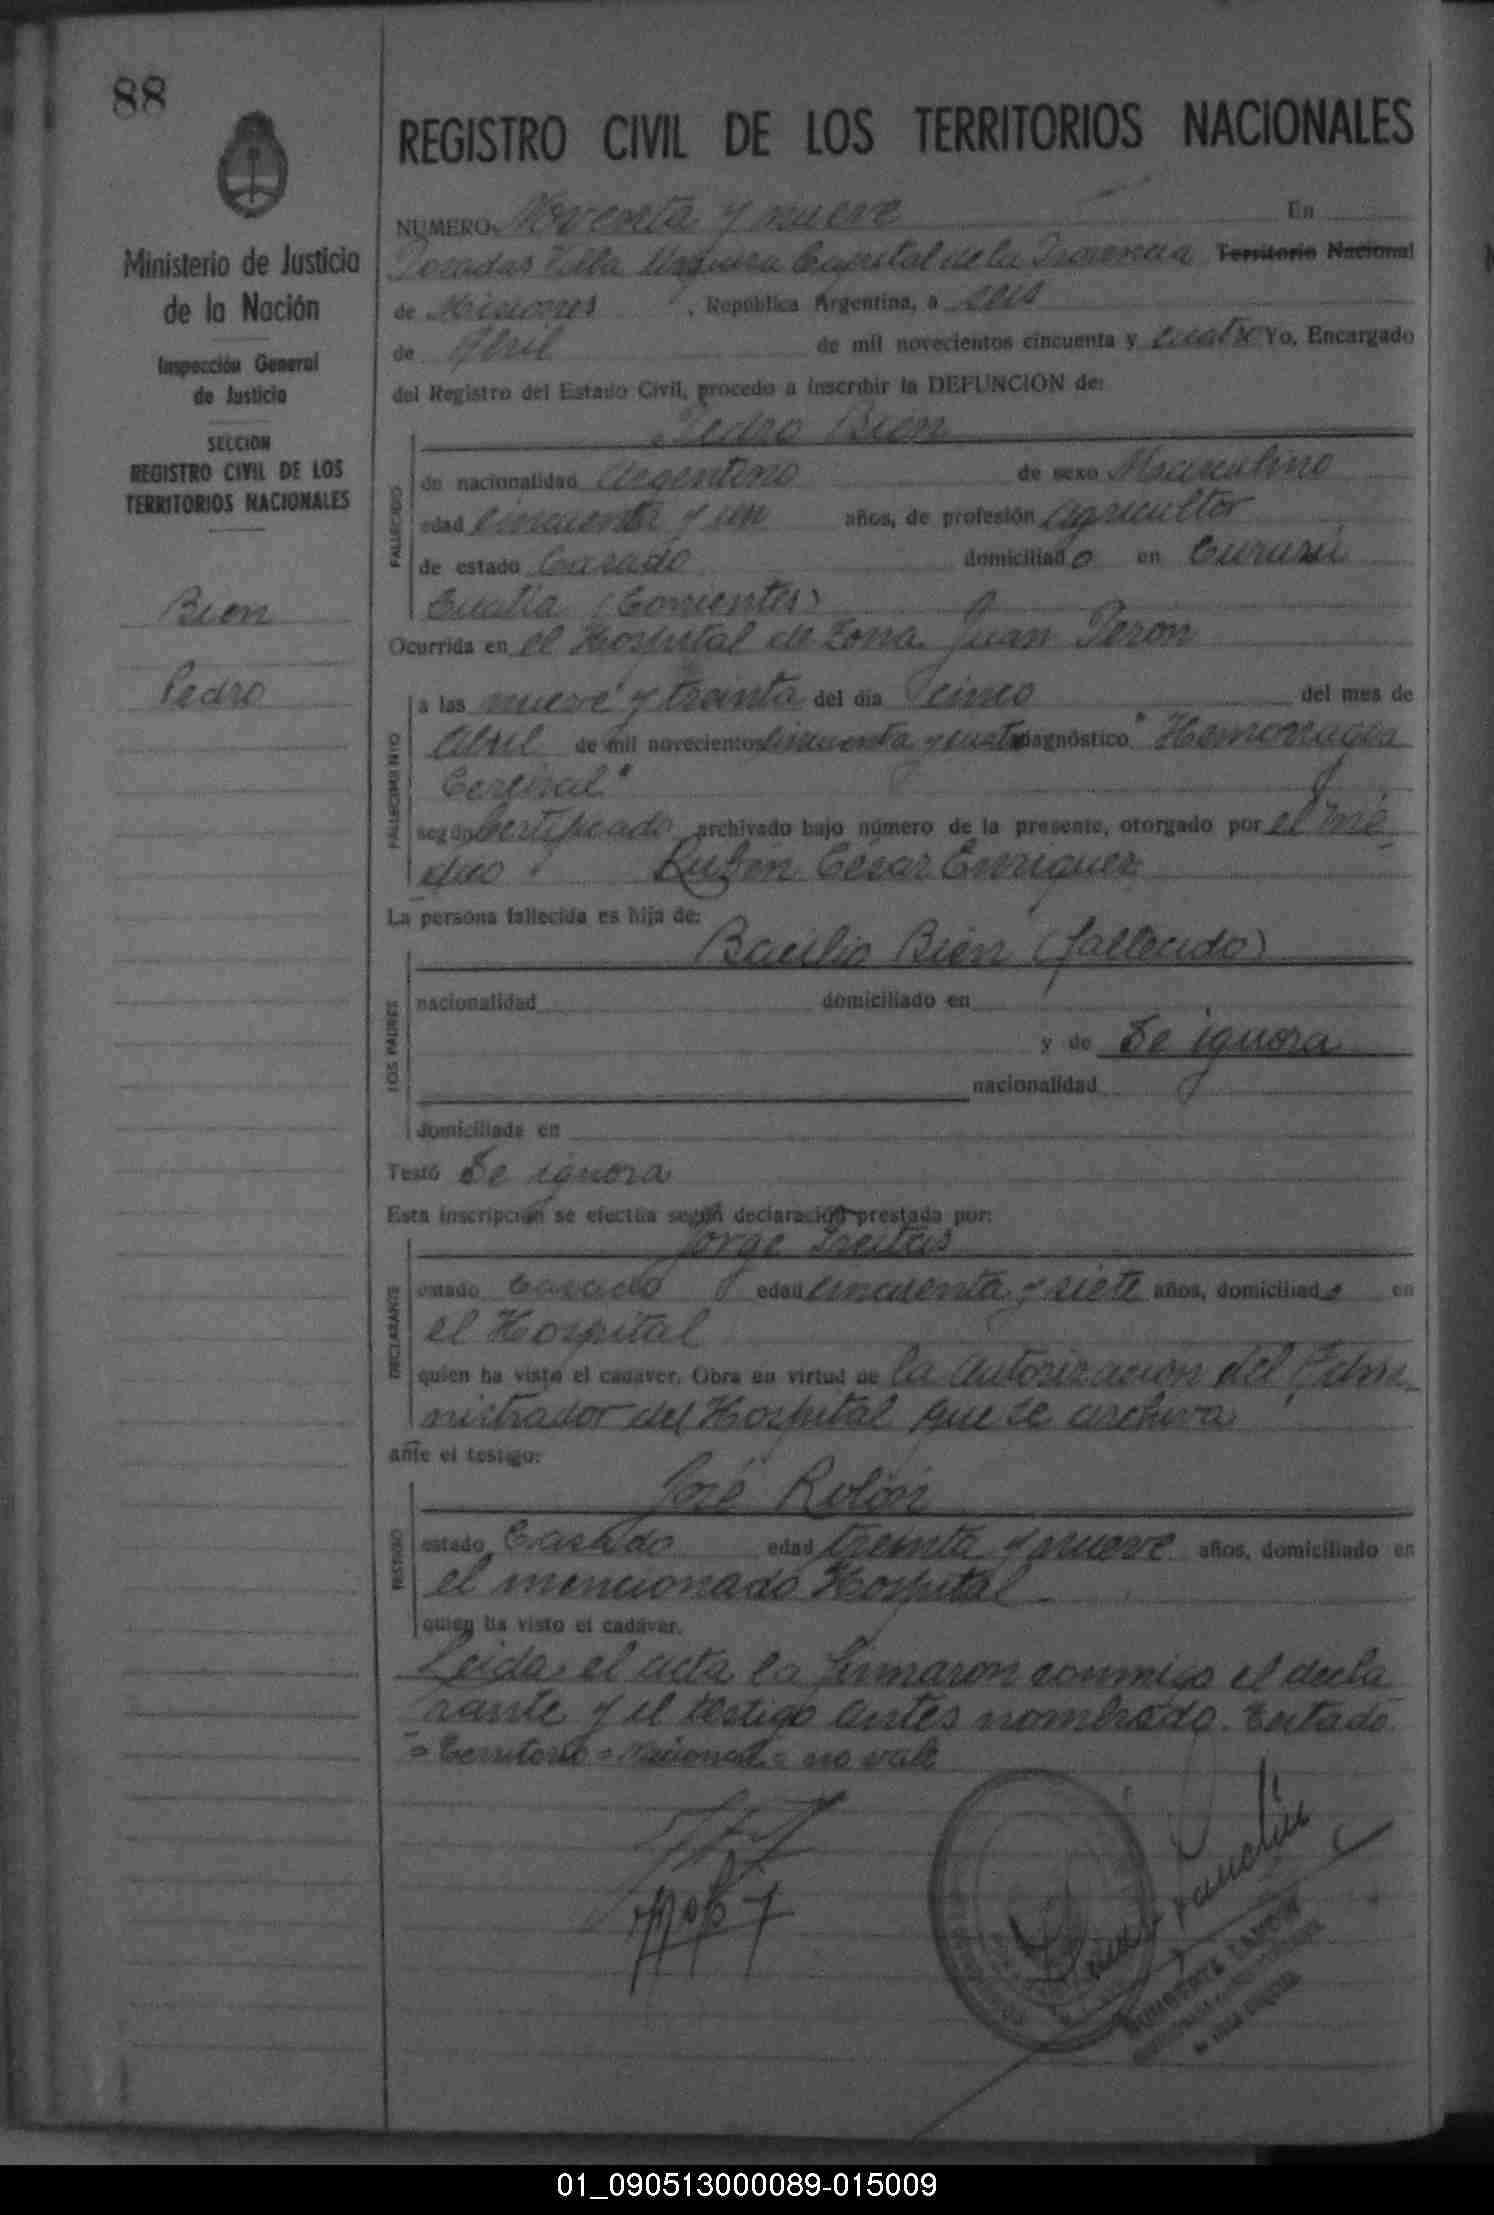 88
REGISTRO CIVIL DE LOS TERRITORIOS NACIONALES
Ministerio de Justicia
de la Nación
Inspección General
de Justicia
SECCION
REGISTRO CIVIL DE LOS
TERRITORIOS NACIONALES
Bien
Pedro
NUMERO Noventa y nueve En
Posadas Villa Urquiza Capital de la Provincia Territorio Nacional
de Misiones, República Argentina, a seis
de Abril de mil novecientos cincuenta y cuatro Yo, Encargado
del Registro del Estado Civil, procedo a inscribir la DEFUNCION de:
Pedro Bien
FALLECIDO
de nacionalidad Argentino de sexo Masculino
edad Cincuenta y un años, de profesión agricultor
de estado Casado domiciliado en Curuzú
Cuatia (Corrientes)
Ocurrida en el Hospital de Zona Juan Perón
FALLECIMIENTO
a las nueve y treinta del día cinco del mes de
Abril de mil novecientos cincuenta y cuatro diagnóstico "Hemorragea
Cerebral"
según Certificado archivado bajo número de la presente, otorgado por el mé-
dico Rubén César Enriquez
La persona fallecida es hija de:
LOS PADRES
Bacilio Bien (fallecido)
nacionalidad domiciliado en
y de Se ignora
nacionalidad
domiciliada en
Testó Se ignora
Esta inscripción se efectúa según declaración prestada por:
DECLARANTE
Jorge Freitas
estado Casado edad cincuenta y siete años, domiciliado en
el Hospital
quien ha visto el cadáver. Obra en virtud de la autorización del Admi-
nistrador del Hospital que se archiva
ante el testigo:
TESTIGO
José Rolón
estado Casado edad treinta y nueve años, domiciliado en
el mencionado Hospital
quien ha visto el cadáver.
Leida el acta la firmaron conmigo el decla
rante y el testigo antes nombrado. Testado
= Territorio = Nacional = no vale
01_090513000089-015009